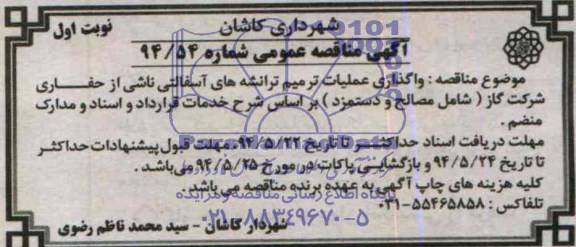 شهرداری کاشان
نوبت اول
آگهی مناقصه عمومی شماره ۹۴/۵۴
موضوع مناقصه : واگذاری عملیات ترمیم ترانشه های آسفالتی ناشی از حفـــاری
شرکت گاز ( شامل مصالح و دستمزد ) بر اساس شرح خدمات قرارداد و اسناد و مدارک
منضم .
مهلت دریافت اسناد حداکثـــر تا تاریخ ۹۴/۵/۲۲، مهلت قبول پیشنهادات حداکثـر
تا تاریخ ۹۴/۵/۲۴ و بازگشایـی پاکات در مورخ ۹۴/۵/۲۵ می باشـد .
کلیه هزینه های چاپ آگهی به عهده برنده مناقصه می باشد .
پایگاه اطلاع رسانی مناقصه و مزایده
تلفاکس : ۵۵۴۶۵۸۵۸-۰۳۱
۰۲۱-۸۸۳۴۹۶۷۰-۵
شهردار کاشان - سید محمد ناظم رضوی